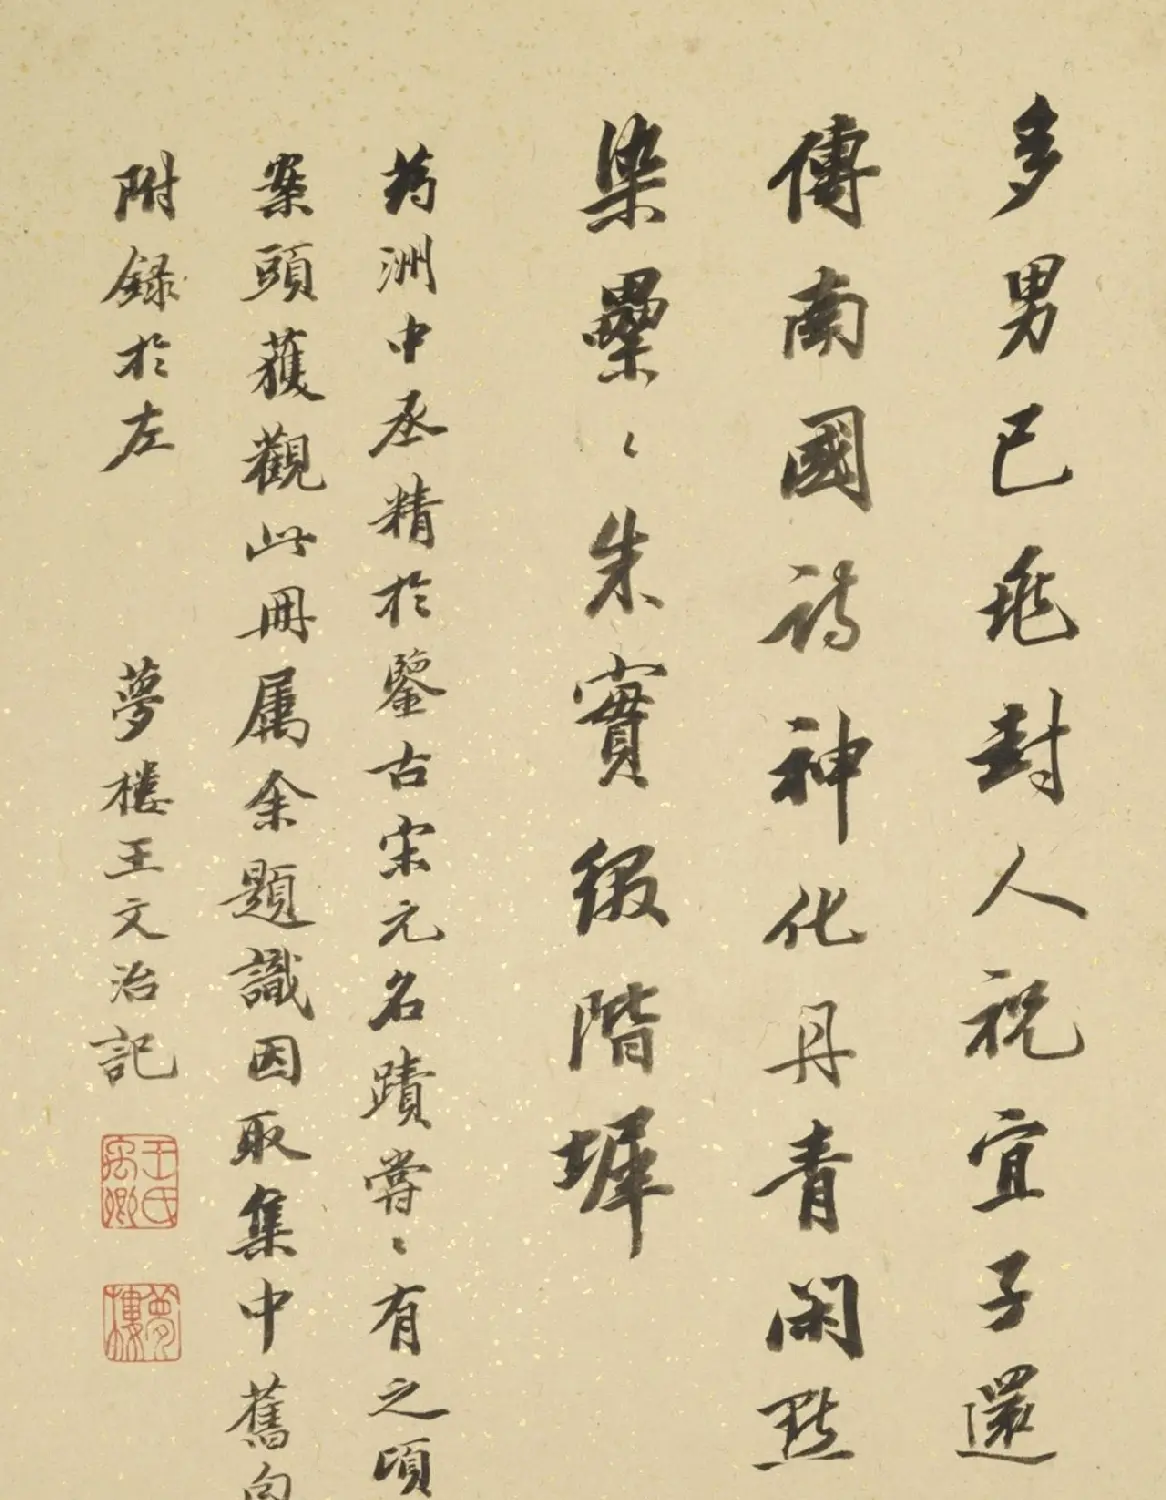 多男已兆封人祝宜子還
傳南國詩神化丹青閑點
染壘〻朱實綴階墀
葯洲中丞精於鑒古宋元名蹟嘗〻有之頃
案頭獲觀此冊属余題識因取集中舊句
附録於左
夢樓王文治記
王氏禹卿
夢樓